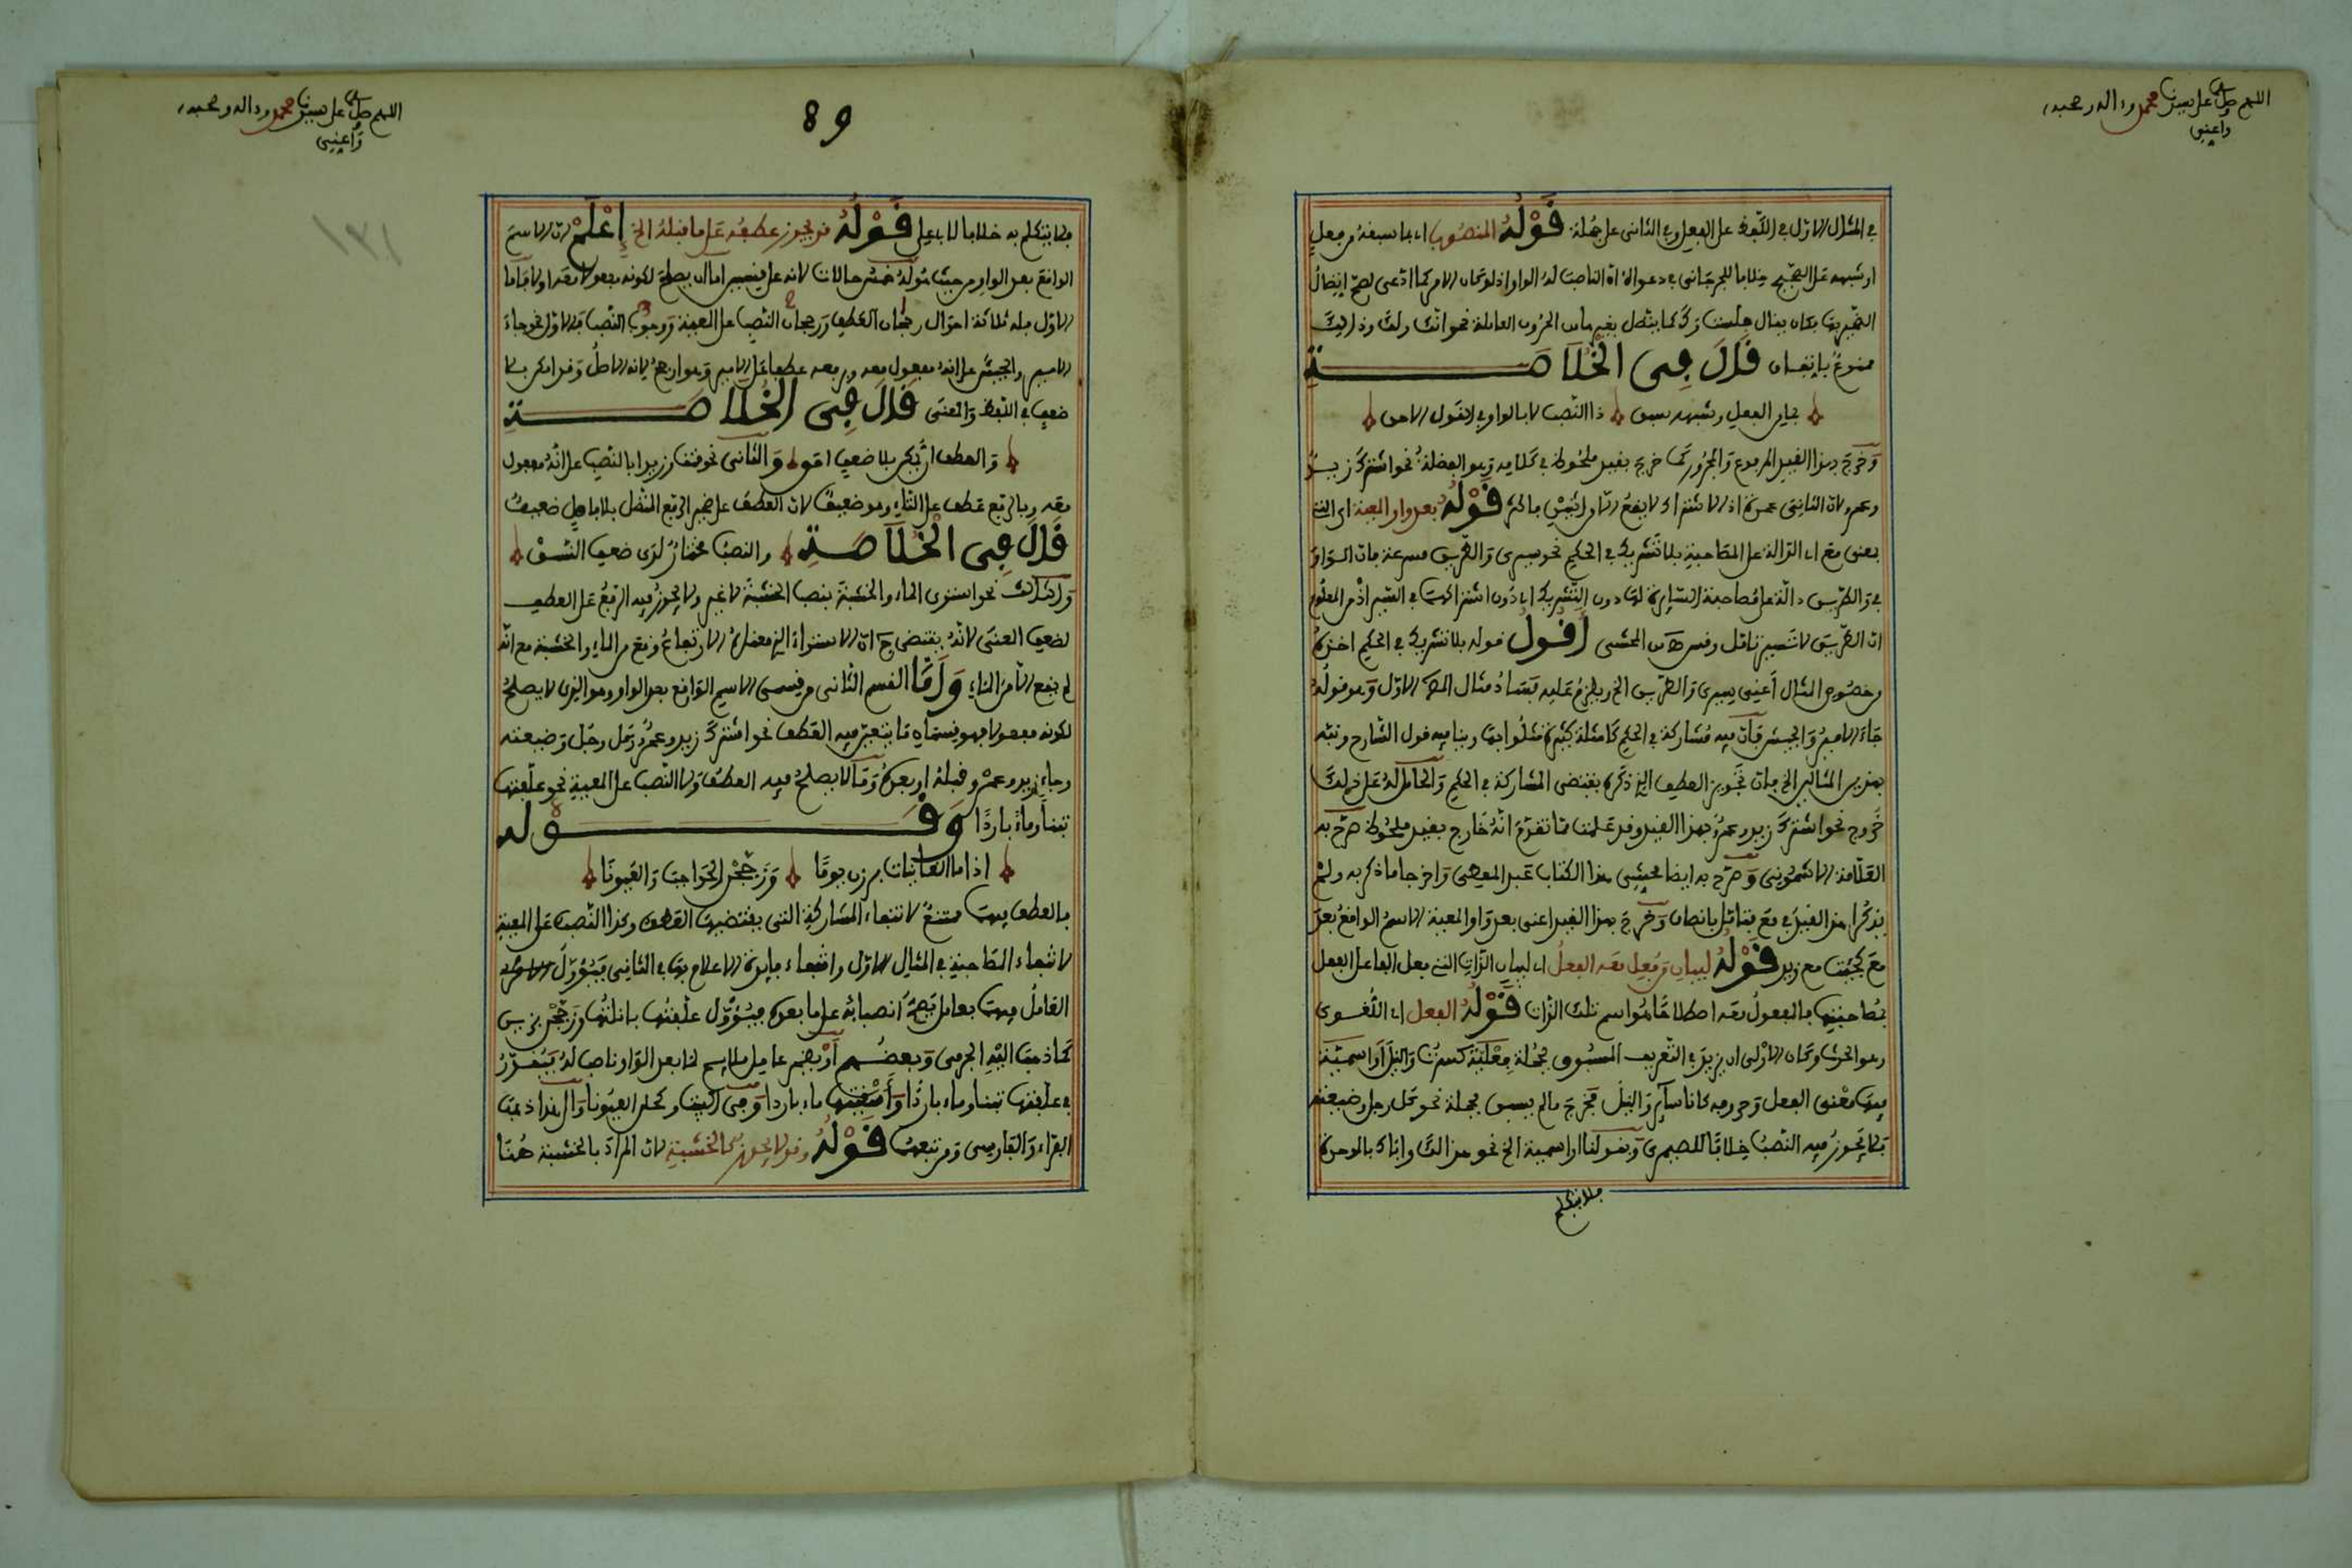 اللهم صل على سيدنا محمد وءاله وصحبه
وأعني
في المثال الأول في اللفظ على الفعل وفي الثاني على جملة قَوْلُهُ المنصوب أي بما سبقه من فعل
أو شبهه على الصحيح خلافا للجرجاني في دعواه أن الناصب له الواو إذ لو كان الأمر كما ادعى لصح اتصال
الضمير بها فكان يقال جلست وك كما يتصل بغيرها من الحروف العاملة نحو انك ولك وذلك
ممنوع باتفاق قَالَ فِي الْخُلَاصَةِ
بما من الفعل وشبهه سبق ذا النصب لا بالواو في القول الأحق
وخرج بهذا القيد المرفوع والمجرور كما خرج بقيد ملحوظ في كلامه وهو الفضلة نحو اشترك زيد
وعمرو لأن الثاني عمدة إذ الاشتراك لا يقع إلا من اثنين فأكثر قَوْلُهُ بعد واو المعية أي التي
بمعنى مع أي الدالة على المصاحبة بلا تشريك في الحكم نحو سيري والطريق مسرعة فان الواو
في والطريق دالة على مصاحبة السايرة لها دون التشريك أي دون اشتراكهما في السير إذ من المعلوم
ان الطريق لا تسير تأمل وفي المحشى أَقُولُ قوله بلا تشريك في الحكم اخذه
من خصوص المثال أعني سيري والطريق الخ ويلزم عليه فساد مثال الأول وهو قوله
جاء الأمير والجيش فان فيه مشاركة في الحكم كأمثلة كثيرة مثلوا بها وينافيه قول الشارح ونبه
بهذين المثالين الخ فان تجويز العطف الذي ذكره يقتضي المشاركة في الحكم والحامل له على ذلك
خروج نحو اشترك زيد وعمرو بهذا القيد وقد علمت مما تقدم انه خارج بقيد ملحوظ صرح به
العلامة الأشموني وصرح به ايضا محشي هذا الكتاب عبد المعطي واخرجا ما ذكر به ولم
يذكرا هذا القيد في مع فتأمل بانصاف وخرج بهذا القيد اعني بعد واو المعية الاسم الواقع بعد
مع كجئت مع زيد قَوْلُهُ لبيان من فعل معه الفعل أي لبيان الذات التي فعل الفاعل الفعل
بمصاحبتها فالمفعول معه اصطلاحا هو اسم تلك الذات قَوْلُهُ الفعل أي اللغوي
وهو الحدث وكان الأولى ان يزيد في التعريف المسبوق بجملة فعلية كسرت والنيل أو اسمية
فيها معنى الفعل وحروفه كانا ساير والنيل فخرج ما لم يسبق بجملة نحو كل رجل وضيعته
فلا يجوز فيه النصب خلافا للصيمري وبقولنا أو اسمية الخ نحو هذا لك واباك بالموحدة
فلا يتكلم
اللهم صل على سيدنا محمد وءاله وصحبه
وأعني
89
١٣١
فلا يتكلم به خلافا لأبي علي قَوْلُهُ قد يجوز عطفه على ما قبله الخ إِعْلَمْ أن الاسم
الواقع بعد الواو من حيث هو له خمس حالات لأنه على قسمين اما ان يصلح لكونه مفعولا معه اولا فاما
الأول فله ثلاثة احوال رجحان العطف ورجحان النصب على المعية ووجوب النصب فالأول نحو جاء
الأمير والجيش على انه مفعول معه ورفعه عطفا على الأمير وهو ارجح لأنه الأصل وقد امكن بلا
ضعف في اللفظ والمعنى قَالَ فِي الْخُلَاصَةِ
والعطف ان يمكن بلا ضعف احق والثاني نحو قمت وزيدا بالنصب على انه مفعول
معه وبالرفع عطف على التاء وهو ضعيف لأن العطف على ضمير الرفع المتصل بلا فاصل ضعيف
قَالَ فِي الْخُلَاصَةِ والنصب مختار لدى ضعف النسق
والثالث نحو استوى الماء والخشبة بنصب الخشبة لا غير ولا يجوز فيه الرفع على العطف
لضعف المعنى لأنه يقتضي ح أن الاستواء الذي معناه الارتفاع وقع من الماء والخشبة مع انه
لم يقع الا من الماء وَأَمَّا القسم الثاني من قسمي الاسم الواقع بعد الواو وهو الذي لا يصلح
لكونه مفعولا فهو قسمان ما يتعين فيه العطف نحو اشترك زيد وعمرو وكل رجل وضيعته
وجاء زيد وعمرو قبله او بعده وما لا يصلح فيه العطف ولا النصب على المعية نحو علفتها
تبنا وماء باردا وَقَوْله
اذا ما الغانيات برزن يوما وزججن الحواجب والعيونا
فالعطف فيهما ممتنع لانتفاء المشاركة التي يقتضيها العطف وكذا النصب على المعية
لانتفاء المصاحبة في المثال الأول وانتفاء فايدة الاعلام بها في الثاني فيؤول
العامل فيهما بعامل يصح انصبابه على ما بعده فيؤول علفتها بانلتها وزججن بزين
كما ذهب اليه الجرمي وبعضهم أو يضمر عامل ملايم لما بعد الواو ناصب له فيقدر
في علفتها تبنا وماء باردا وأسقيتها ماء باردا وفي البيت وكحلن العيونا والى هذا ذهب
الفراء والفارسي ومن تبعهما قَوْلُهُ وقد لا يجوز كالخشبة لأن المراد بالخشبة هنا